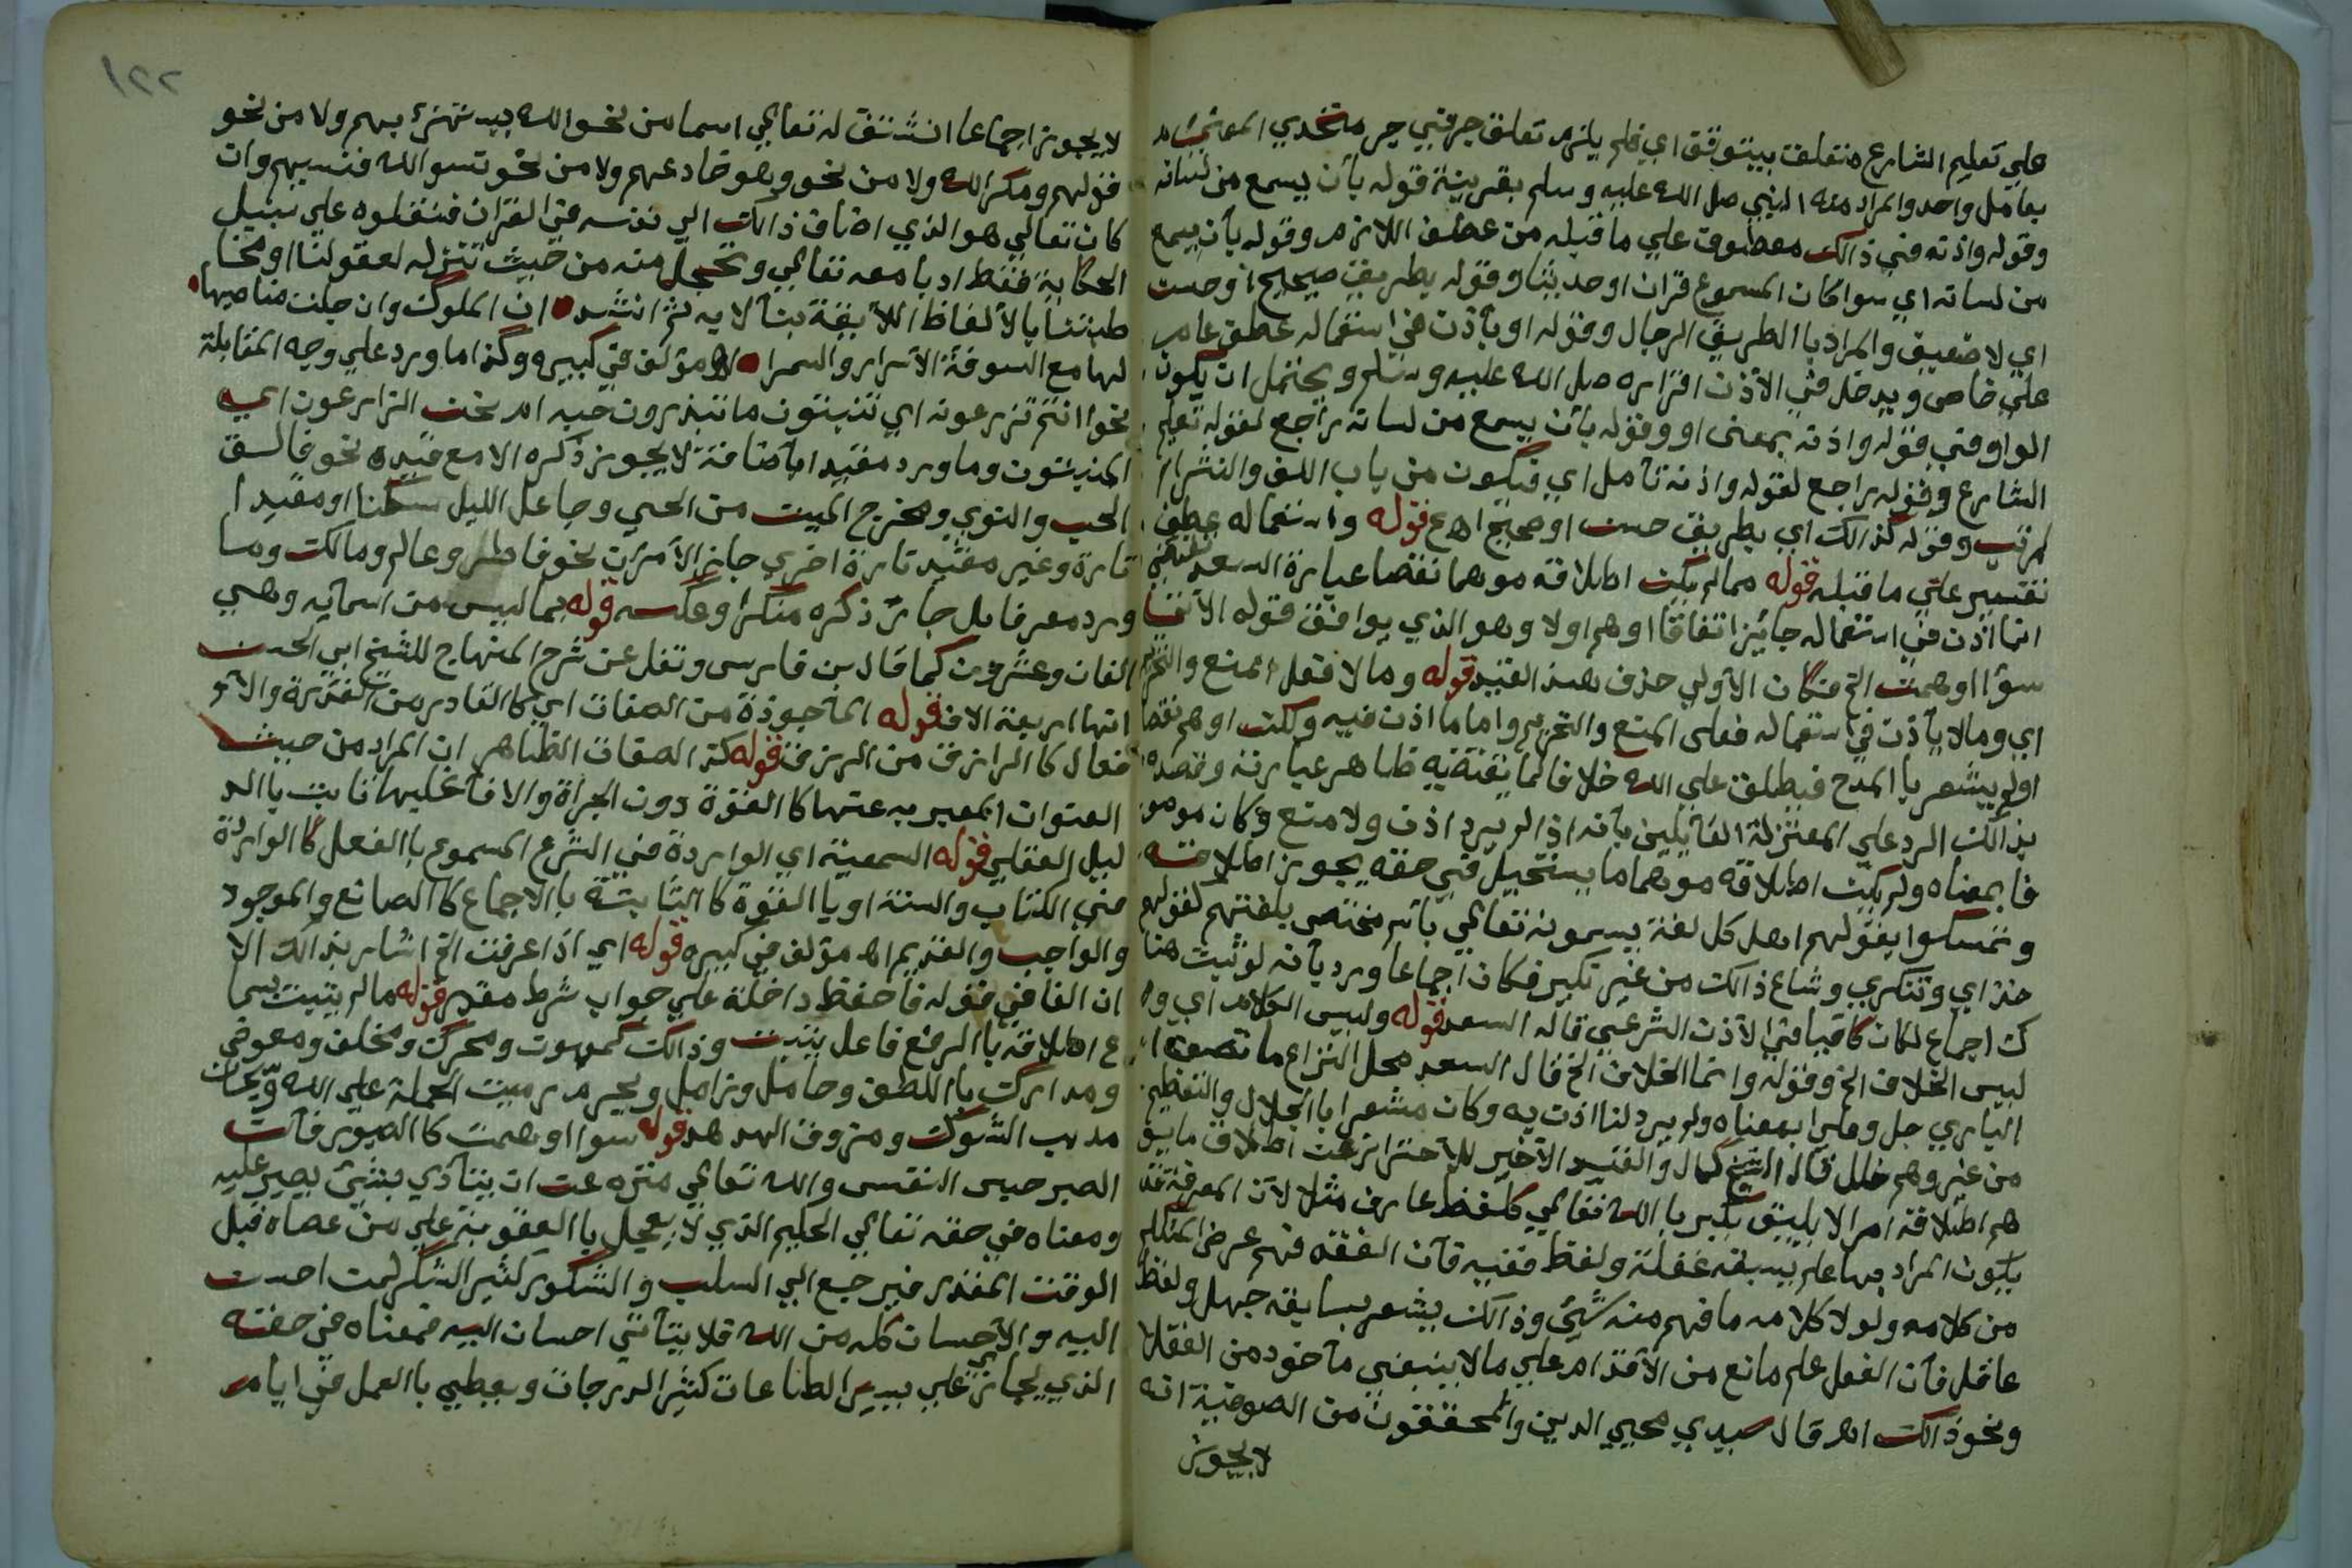 علي تعليم الشارع متعلق بيتوقف اي فلم يلزم تعلق حرفي جر متحدي المعني
بعامل واحد والمراد منه النبي صلي الله عليه وسلم بقرينة قوله بأن يسمع من لسانه
وقوله واذنه في ذالك معطوف علي ما قبله من عطف اللازم وقوله بأن يسمع
من لسانه اي سوا كان المسموع قران او حديثا وقوله بطريق صحيح او حسن
اي لا ضعيف والمراد باالطريق الرجال وقوله او بأذن في استعماله عطف عام
علي خاص ويدخل في الأذن اقراره صلي الله عليه وسلم ويحتمل ان يكون
الواو في قوله واذنه بمعني او وقوله بأن يسمع من لسانه راجع لقوله تعليم
الشارع وقوله راجع لقوله واذنه تأمل اي فيكون من باب اللف والنشر ا
لمرتب وقوله كذالك اي بطريق حسن او صحيح اهـ ع قوله واستعماله عطف
تفسير علي ما قبله قوله مما لم يكن اطلاقه موهما نقصا عبارة السعد
انما اذن في استعماله جائز اتفاقا اوهم اولا وهو الذي يوافق قوله الأتي
سوا اوهمت الخ فكان الأولي حذف هذا القيد قوله وما لا فعلي المنع والتحريم
اي وما لا يأذن في استعماله فعلي المنع والتحريم واما ما اذن فيه ولكن اوهم نقصا
اولم يشعر باالمدح فيطلق علي الله خلافا لما يقتضيه ظاهر عبارته وقصده
بذالك الرد علي المعتزلة القايلين بأنه اذا لم يرد اذن ولا منع وكان موصو
فا بمعناه ولم يكن اطلاقه موهما ما يستحيل في حقه يجوز اطلاقه
وتمسكوا بقولهم اهل كل لغة يسمونه تعالي بأسم مختص بلغتهم كقولهم
خداي وتنكري وشاع ذالك من غير نكير فكان اجماعا ورد بأنه لو ثبت هنا
ك اجماع لكان كافيا في الأذن الشرعي قاله السعد قوله وليس الكلام اي و
ليس الخلاف الخ وقوله وانما الخلاف الخ قال السعد محل النزاع ما تصف ا
الباري جل وعلي بمعناه ولم يرد لنا اذن به وكان مشعرا باالجلال والتعظيم
من غير وهم خلل قال الشيخ كمال والقيد الأخير للأحتراز عن اطلاق ما يو
هم اطلاقه امرا لا يليق بكبرياء الله تعالي كلفظ عارف مثلا لأن المعرفة قد
يكون المراد بها علم يسبقه غفلة ولفظ فقيه فأن الفقه فهم غرض المتكلم
من كلامه ولولا كلامه ما فهم منه شيئ وذالك يشعر بسابقه جهل ولفظ
عاقل فأن العقل علم مانع من الأقدام علي ما لا ينبغي مأخوذ من العقال
ونحو ذالك اهـ قال سيدي محيي الدين والمحققون من الصوفية انه
لا يجوز
١٢٢
لا يجوز اجماعا ان نشتق له تعالي اسما من نحو الله يستهزئ بهم ولا من نحو
قولهم ومكر الله ولا من نحو وهو خادعهم ولا من نحو نسوا الله فنسيهم وان
كان تعالي هو الذي اضاف ذالك الي نفسه في القران فنتلوه علي سبيل
الحكاية فقط ادبا معه تعالي ونخجل منه من حيث تنزله لعقولنا ومخا
طبتنا باالألفاظ اللائقة بنا لا به ثم انشد ان الملوك وان جلت مناصبها
لها مع السوقة الأسرار والسمر اهـ مؤلف في كبيره وكذا ما ورد علي وجه المقابلة
نحو أانتم تزرعونه اي تنبتون ما تبذرون حبه ام نحن الزارعون اي
المنبتون وما ورد مقيدا بأضافة لا يجوز ذكره الا مع قيده نحو فالق
الحب والنوي ومخرج الميت من الحي وجاعل الليل سكنا او مقيدا
تارة وغير مقيد تارة اخري جاز الأمران نحو فاطر وعالم ومالك وما
ورد معرفا بل جائز ذكره منكرا وعكسه قوله بما ليس من اسمائه وهي
الفان وعشرون كما قال بن فارس ونقل عن شرح المنهاج للشيخ ابي الحسن
انها اربعة الاف قوله المأخوذة من الصفات اي كاالقادر من القدرة والأ
فعال كا الرازق من الرزق قوله كذ الصفات الظاهر ان المراد من حيث
العنوان المعبر به عنها كا القدرة دون الجرأة والا فأغلبها ثابت باالد
ليل العقلي قوله السمعية اي الواردة في الشرع المسموع باالفعل كا الواردة
في الكتاب والسنة او باالقوة كا الثابتة باالأجماع كا الصانع والموجود
والواجب والقديم اهـ مؤلف في كبيره قوله اي اذا عرفت الخ اشار بذالك الا
ان الفا في قوله فاحفظ داخلة علي جواب شرط مقدر قوله ما لم يثبت سما
ع اطلاقه باالرفع فاعل يثبت وذالك كموت ومحرك ومخلف ومعوض
ومدارك باللطف وحامل وزامل ومجرم زميت الجملة علي الله ويحان
مدبب الشوك ومزوق الهدهد قوله سوا اوهمت كا الصبور فأن
الصبر حبس النفس والله تعالي منزه عن ان يتأذي بشيئ يصبر عليه
ومعناه في حقه تعالي الحليم الذي لا يعجل باالعقوبة علي من عصاه قبل
الوقت المقدر فيرجع الي السلب والشكور كثير الشكر لمن احسن
اليه والأحسان كله من الله فلا يتأتي احسان اليه فمعناه في حقه
الذي يجازي علي يسير الطاعات كثير الدرجات ويعطي باالعمل في ايام